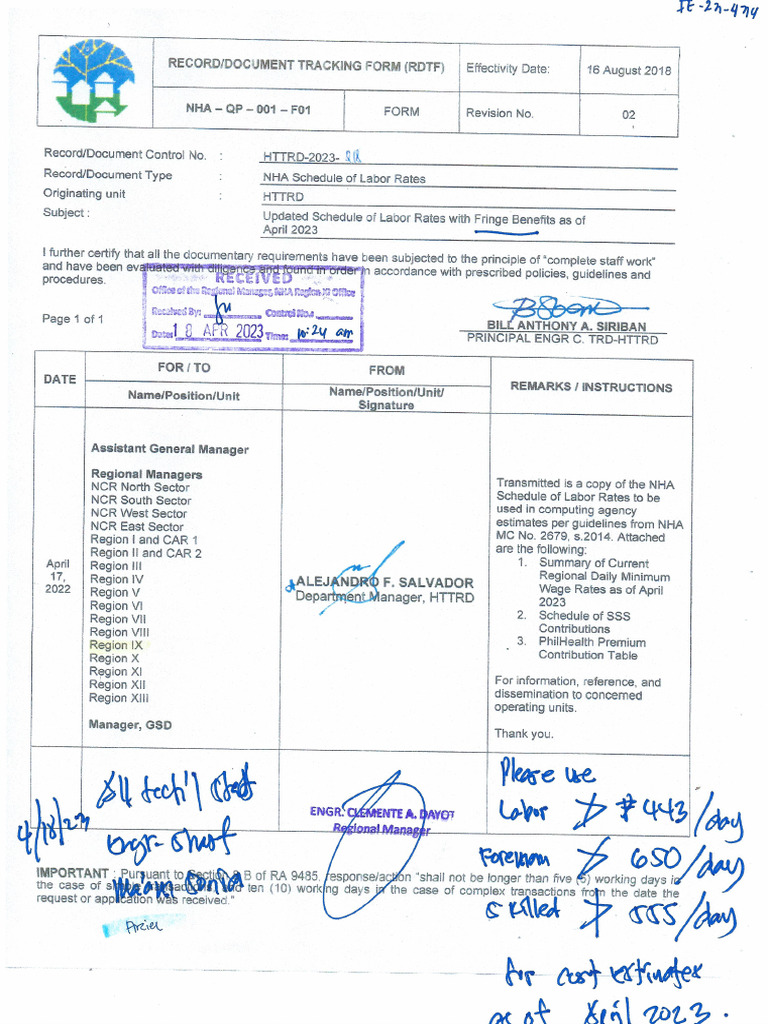 RECORD/DOCUMENT TRACKING FORM (RDTF)
Effectivity Date:
16 August 2018
NHA – QP – 001 – F01
FORM
Revision No.
02
Record/Document Control No. : HTTRD-2023-
Record/Document Type : NHA Schedule of Labor Rates
Originating unit : HTTRD
Subject : Updated Schedule of Labor Rates with Fringe Benefits as of
April 2023
I further certify that all the documentary requirements have been subjected to the principle of "complete staff work"
and have been evaluated with diligence and found in order in accordance with prescribed policies, guidelines and
procedures.
RECEIVED
Office of the Regional Manager, NHA Region XI Office
Received By: Control No.:
Date: 18 APR 2023 Time: 10:24 am
Page 1 of 1
BILL ANTHONY A. SIRIBAN
PRINCIPAL ENGR C. TRD-HTTRD
DATE
FOR / TO
Name/Position/Unit
FROM
Name/Position/Unit/
Signature
REMARKS / INSTRUCTIONS
April
17,
2022
Assistant General Manager
Regional Managers
NCR North Sector
NCR South Sector
NCR West Sector
NCR East Sector
Region I and CAR 1
Region II and CAR 2
Region III
Region IV
Region V
Region VI
Region VII
Region VIII
Region IX
Region X
Region XI
Region XII
Region XIII
Manager, GSD
ALEJANDRO F. SALVADOR
Department Manager, HTTRD
Transmitted is a copy of the NHA
Schedule of Labor Rates to be
used in computing agency
estimates per guidelines from NHA
MC No. 2679, s.2014. Attached
are the following:
1. Summary of Current
Regional Daily Minimum
Wage Rates as of April
2023
2. Schedule of SSS
Contributions
3. PhilHealth Premium
Contribution Table
For information, reference, and
dissemination to concerned
operating units.
Thank you.
4/18/23
All tech'l staff
Engr. staff
ENGR. CLEMENTE A. DAYOT
Regional Manager
Please use
Labor > ₱ 443/day
Foreman > 650/day
Skilled > 555/day
for cost estimates
as of April 2023.
IMPORTANT : Pursuant to Section 8 B of RA 9485, response/action "shall not be longer than five (5) working days in
the case of simple transactions and ten (10) working days in the case of complex transactions from the date the
request or application was received."